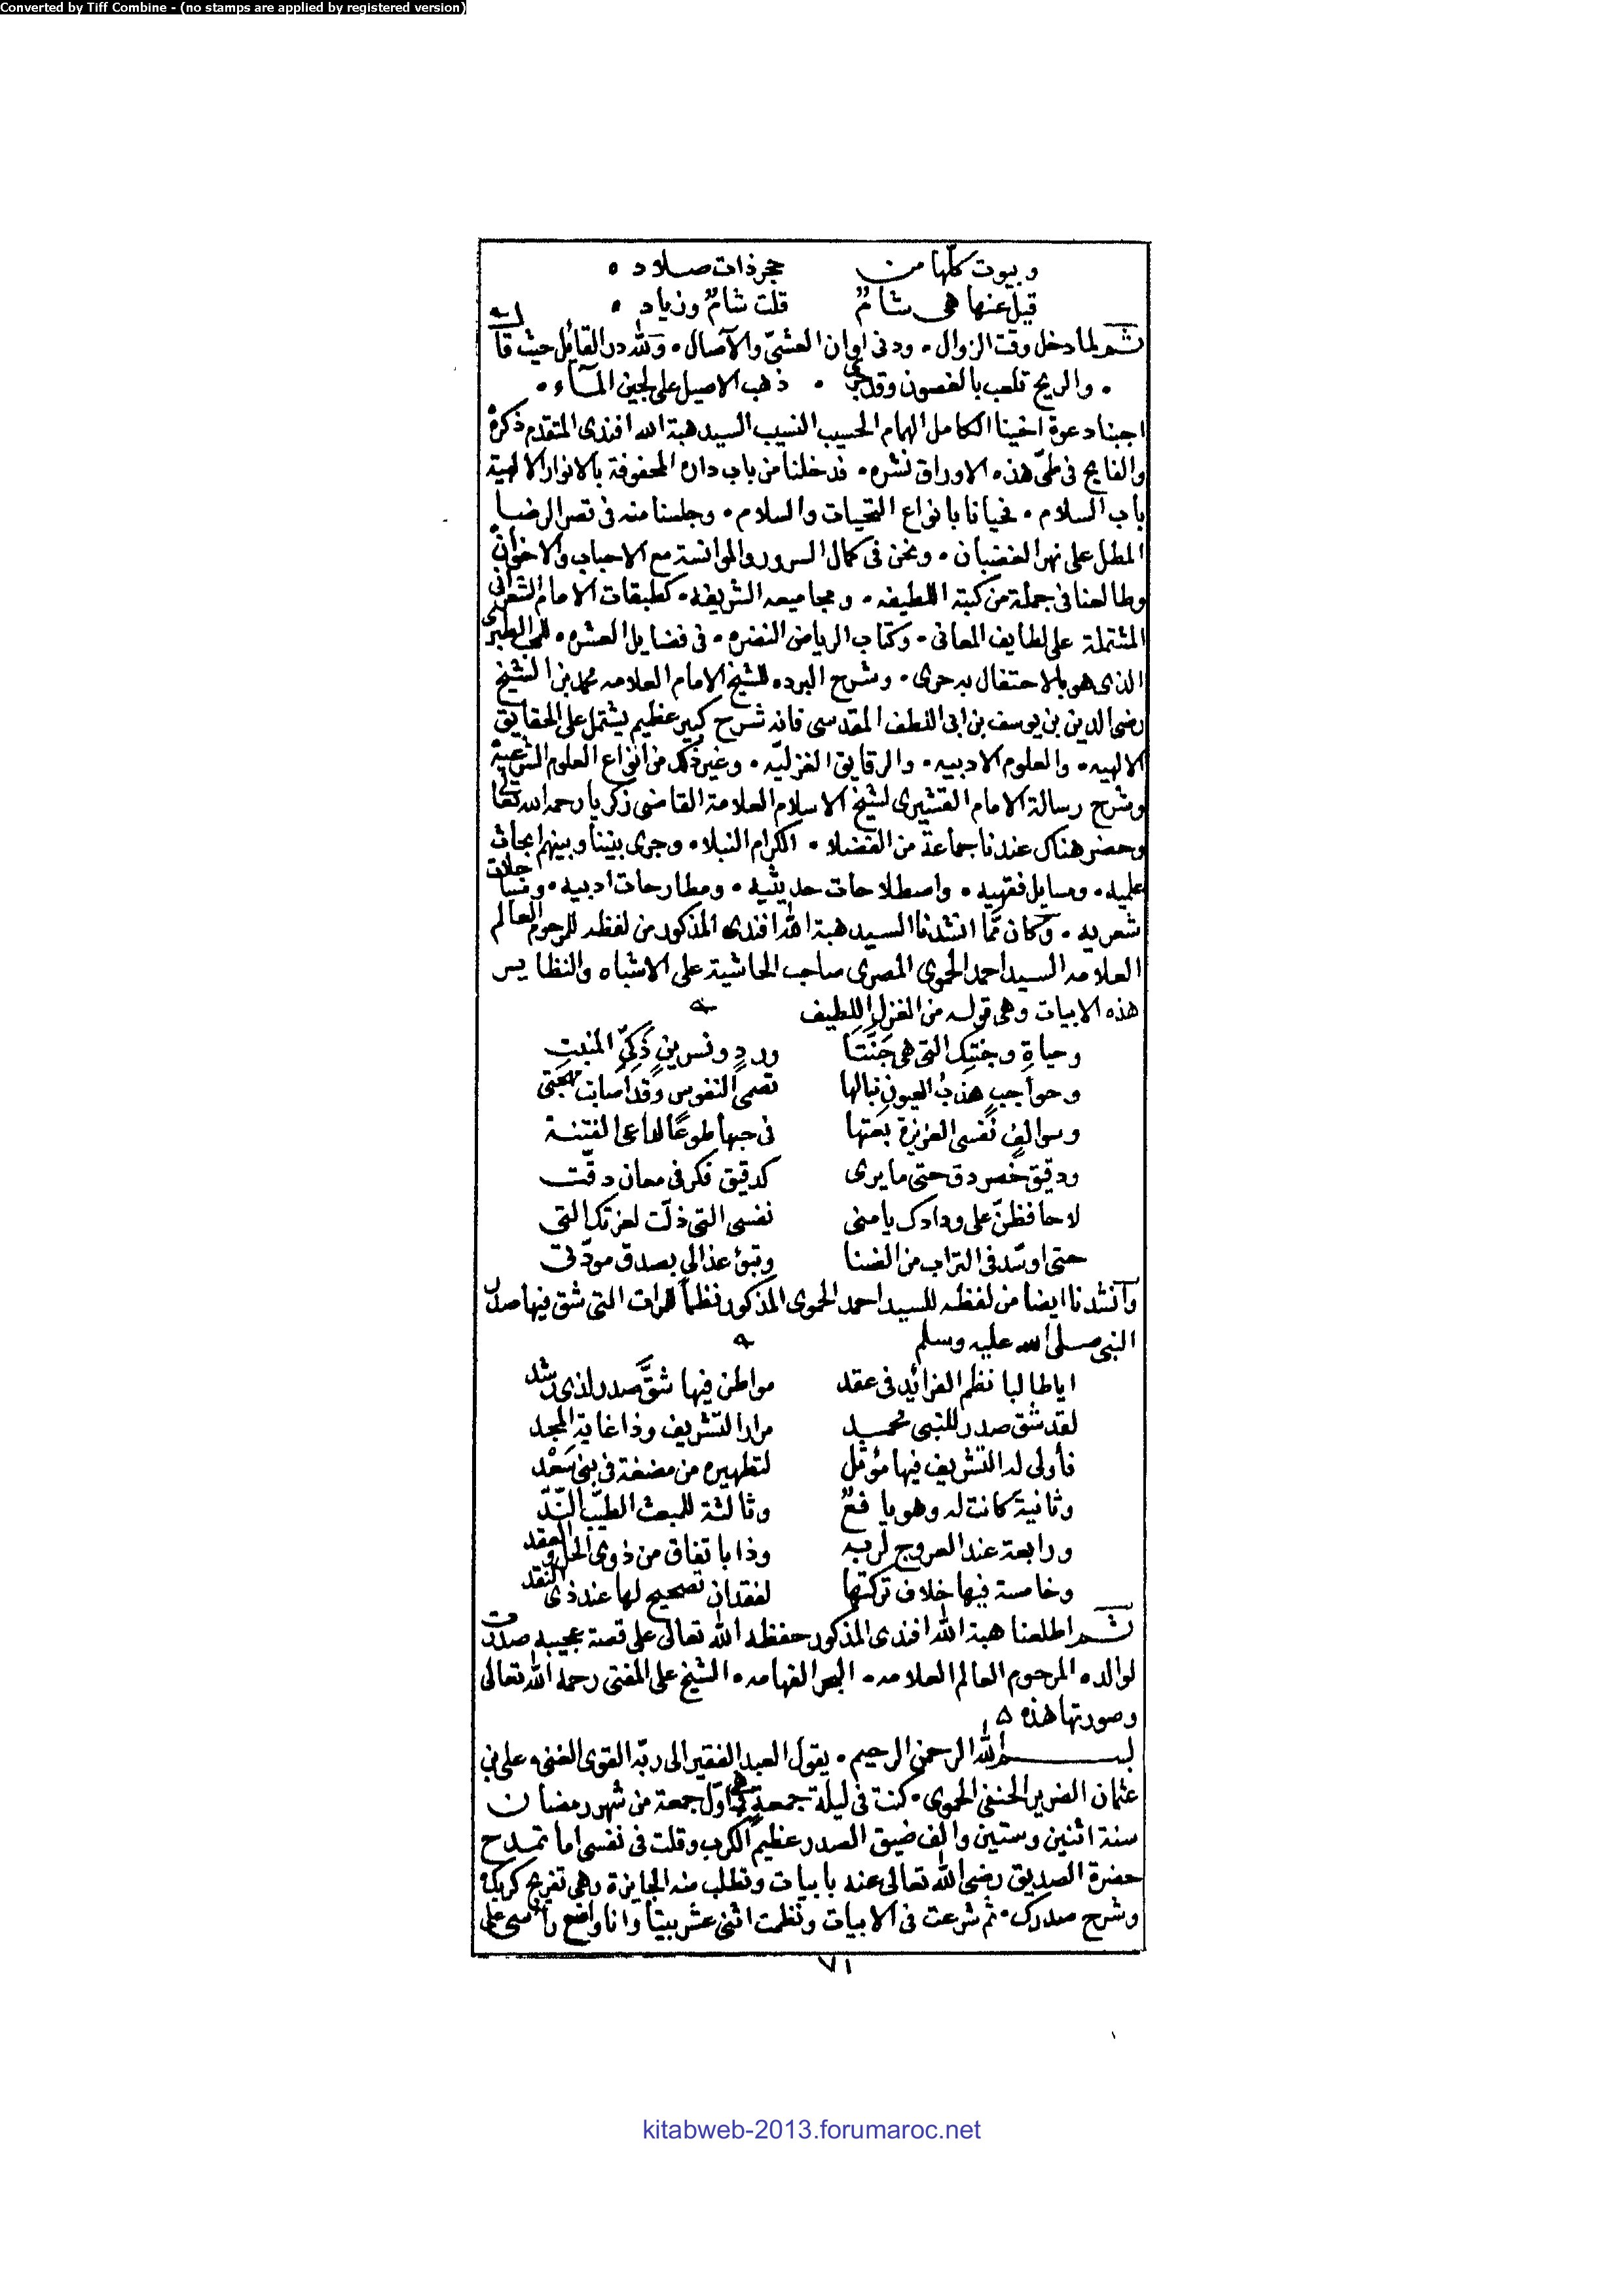 Converted by Tiff Combine - (no stamps are applied by registered version)
وبيوت كلّها من حجر ذات صلاد ه
قيل عنها هي شامٌ قلت شامٌ وزياد ه
ثم لما دخل وقت الزوال ٠ ودنى اوان العشيّ والآصال ٠ ولله در القائل حيث قال
٠ والريح تلعب بالغصون وقد جرى ٠ ذهب الاصيل على لجين المآء ٠
اجبنا دعوة اخينا الكامل الهمام الحسيب النسيب السيد هبة الله افندى المتقدم ذكره
والفايح فى طىّ هذه الاوراق نشره ٠ فدخلنا من باب داره المحفوفة بالانوار الالهية
باب السلام ٠ فحيانا بانواع التحيات والسلام ٠ وجلسنا منه فى قصر الرضا
المطل على نهر الغضبان ٠ ونحن فى كمال السرور والموانسة مع الاحباب والاخوان
وطالعنا فى جملة من كتبه اللطيفه ٠ ومجاميعه الشريفه ٠ كطبقات الامام الشعرانى
المشتملة على لطايف المعانى ٠ وكتاب الرياض النضره ٠ فى فضايل العشره ٠ للمحب الطبرى
الذى هو بالاحتفال به حرى ٠ وشرح البرده للشيخ الامام العلامه محمد بن الشيخ
رضى الدين بن يوسف بن ابى اللطف المقدسى فانه شرح كبير عظيم يشتمل على الحقايق
الالهيه ٠ والعلوم الادبيه ٠ والرقايق الغزليّه ٠ وغير ذلك من انواع العلوم الشرعية
وشرح رسالة الامام القشيرى لشيخ الاسلام العلامة القاضى زكريا رحمه الله تعالى
وحضر هناك عندنا جماعة من الفضلاء ٠ الكرام النبلاء ٠ وجرى بيننا وبينهم ابحاث
علميه ٠ ومسايل فقهيه ٠ واصطلاحات حديثيه ٠ ومطارحات ادبيه ٠ ومساجلات
شعريه ٠ وكان مّما انشدنا السيد هبة الله افندى المذكور من لفظه للمرحوم العالم
العلامه السيد احمد الحموى المصرى صاحب الحاشية على الاشباه والنظاير
هذه الابيات وهى قوله من الغزل اللطيف
وحياةِ وجنتِك التى هى جَنَّتَا وردٍ ونسرينٍ ذَكِىِّ المنبتِ
وحواجبٍ هذبُ العيونِ نبالها تصمى النفوس وقد اصابت مهجتى
وسوالفٍ نفسى العزيزة بعتها فى حبها طوعًا لداعى الفتنة
ودقيق خصر دق حتى ما يرى كدقيق فكر فى معان دقّت
لاحافظنّ على ودادك يا منى نفسى التى ذلّت لعزتك التى
حتى اوسّد فى التراب من الضنا وتبؤ عذالى بصدق مودّتى
وانشدنا ايضا من لفظه للسيد احمد الحموى المذكور نظماً للمرات التى شق فيها صدر
النبى صلى الله عليه وسلم
ايا طالبا نظم الفرائد فى عقد مواطن فيها شقَّ صدر لذى رشد
لقد شق صدر للنبى محمد مرارا لتشريف وذا غاية المجد
فأولى له التشريف فيها مؤثل لتطهيره من مضغة فى بنى سَعْد
وثانية كانت له وهو يافعٌ وثالثة للمبعث الطيّب النّدّ
ورابعة عند العروج لربه وذا باتفاق من ذوى الحل والعقد
وخامسة فيها خلاف تركتها لفقدان تصحيح لها عند ذى النقد
ثم اطلعنا هبة الله افندى المذكور حفظه الله تعالى على قصة عجيبه صدرت
لوالده المرحوم العالم العلامه ٠ البحر الفهامه ٠ الشيخ على المفتى رحمه الله تعالى
وصورتها هذه ه
بسم الله الرحمن الرحيم ٠ يقول العبد الفقير الى ربّه القوى الغنى ٠ على بن
عثمان الضرير الحنفى الحموى ٠ كنت فى ليلة جمعة هى اوّل جمعة من شهر رمضان
سنة اثنين وستين والف ضيق الصدر عظيم الكرب وقلت فى نفسى اما تمدح
حضرة الصديق رضى الله تعالى عنه بابيات وتطلب منه الجايزة وهى تفريج كربك
وشرح صدرك ٠ ثم شرعت فى الابيات ونظمت اثنى عشر بيتا وانا واضع رأسى على
٧١
kitabweb-2013.forumaroc.net